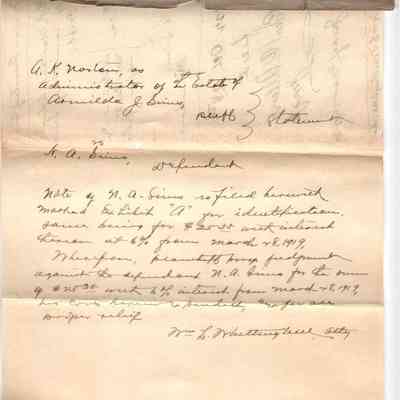 A. K.
administrator of the Estate of
Armilda J. Sims,
Plentff
Statement
vs
N. A. Sims,
Defendant
Note of N. A. Sims is filed herewith
marked Exhibit "A" for identification,
same being for $20.00 with interest
thereon at 6% from March 28, 1919,
Wherefore, plaintiff prays judgment
against the defendant N. A. Sims for the sum
of $20.00 with 6% interest from March 28, 1919,
his costs herein expended, and for all
proper relief
Wm L. Whittinghill, Atty